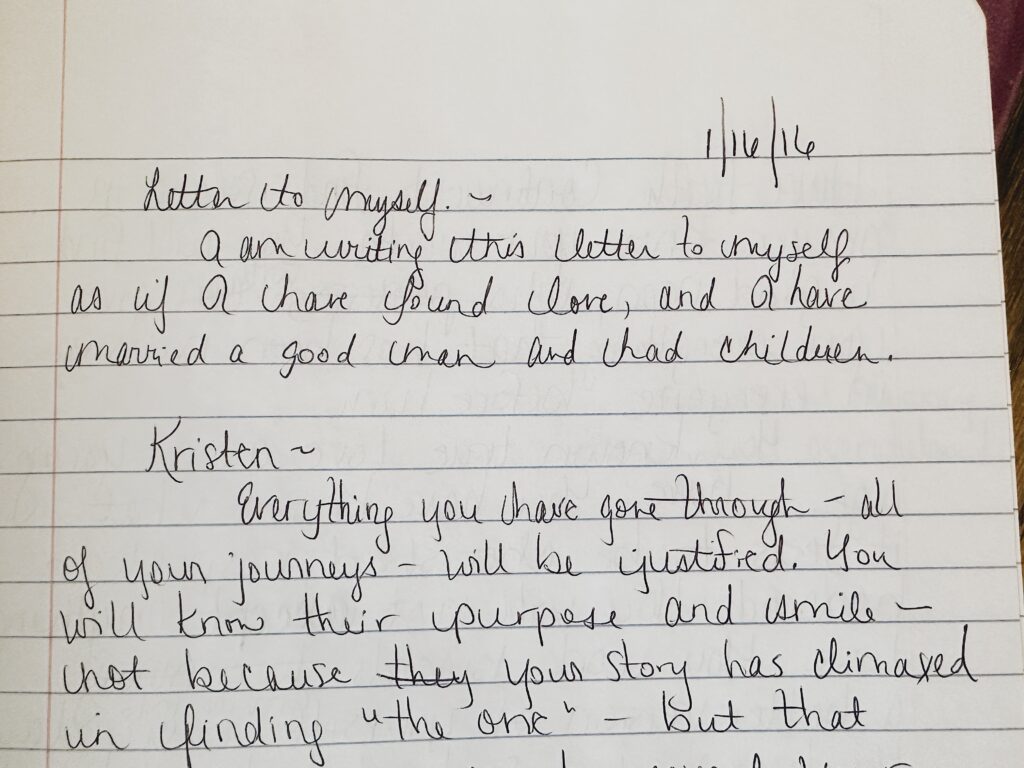 1/16/16
Letter to myself. ~
I am writing this letter to myself
as if I have found love, and I have
married a good man and had children.
Kristen ~
Everything you have gone through - all
of your journeys - will be justified. You
will know their purpose and smile -
not because they your story has climaxed
in finding "the one" - but that